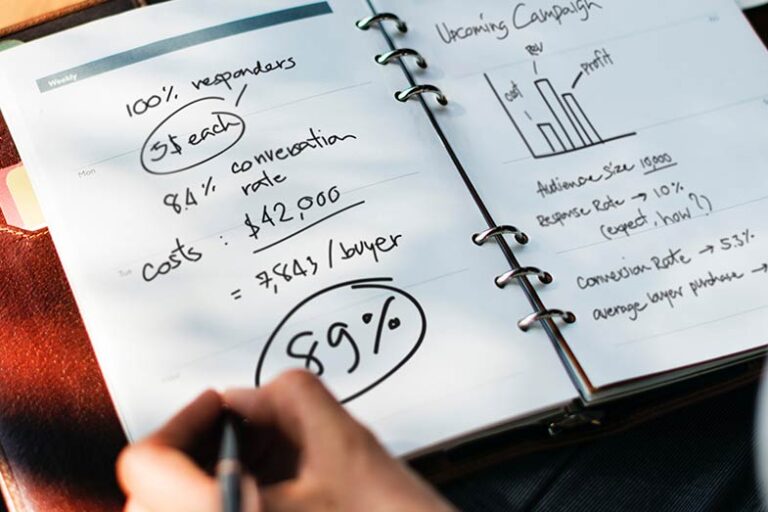 Weekly
100% responders
5$ each
Mon
8.4% conversation
rate
costs : $42,000
= 7,843 / buyer
Tue
89%
Upcoming Campaign
cost
Rev
profit
Audience Size 10,000
Response Rate → 10%
(expect, how?)
Conversion Rate → 5.3%
average buyer purchase →